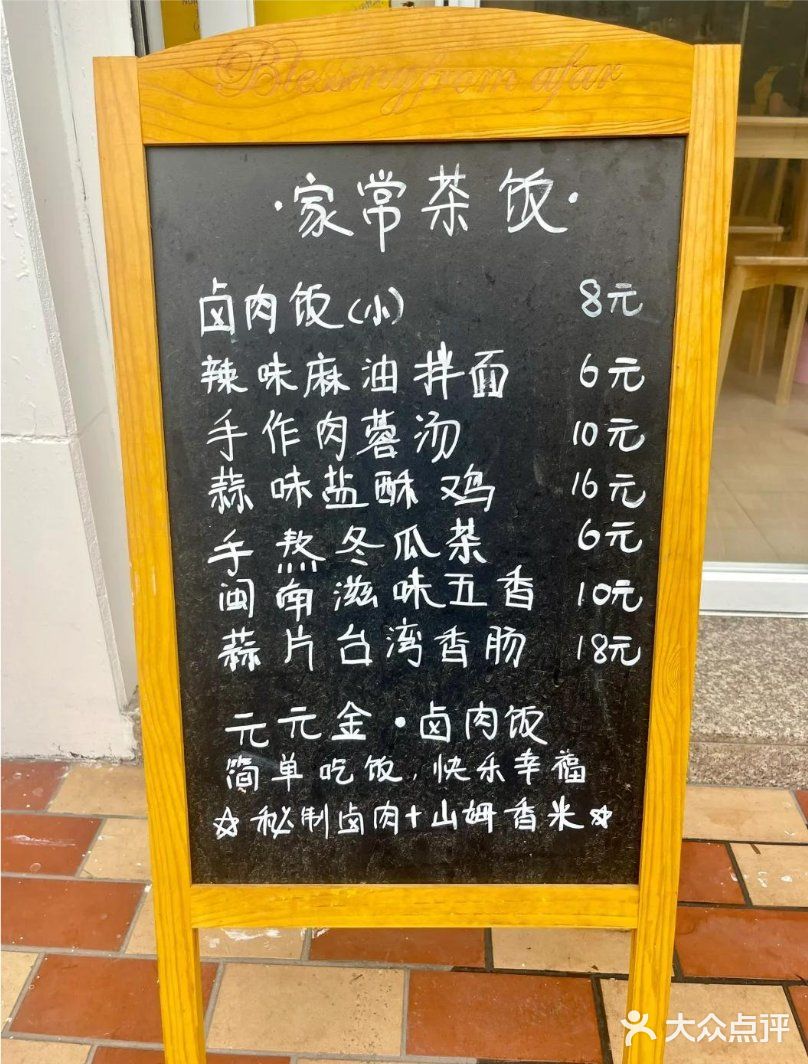 Blessing from afar
·家常茶饭·
卤肉饭(小) 8元
辣味麻油拌面 6元
手作肉蓉汤 10元
蒜味盐酥鸡 16元
手熬冬瓜茶 6元
闽南滋味五香 10元
蒜片台湾香肠 18元
元元金·卤肉饭
简单吃饭,快乐幸福
☆秘制卤肉+山姆香米☆
大众点评